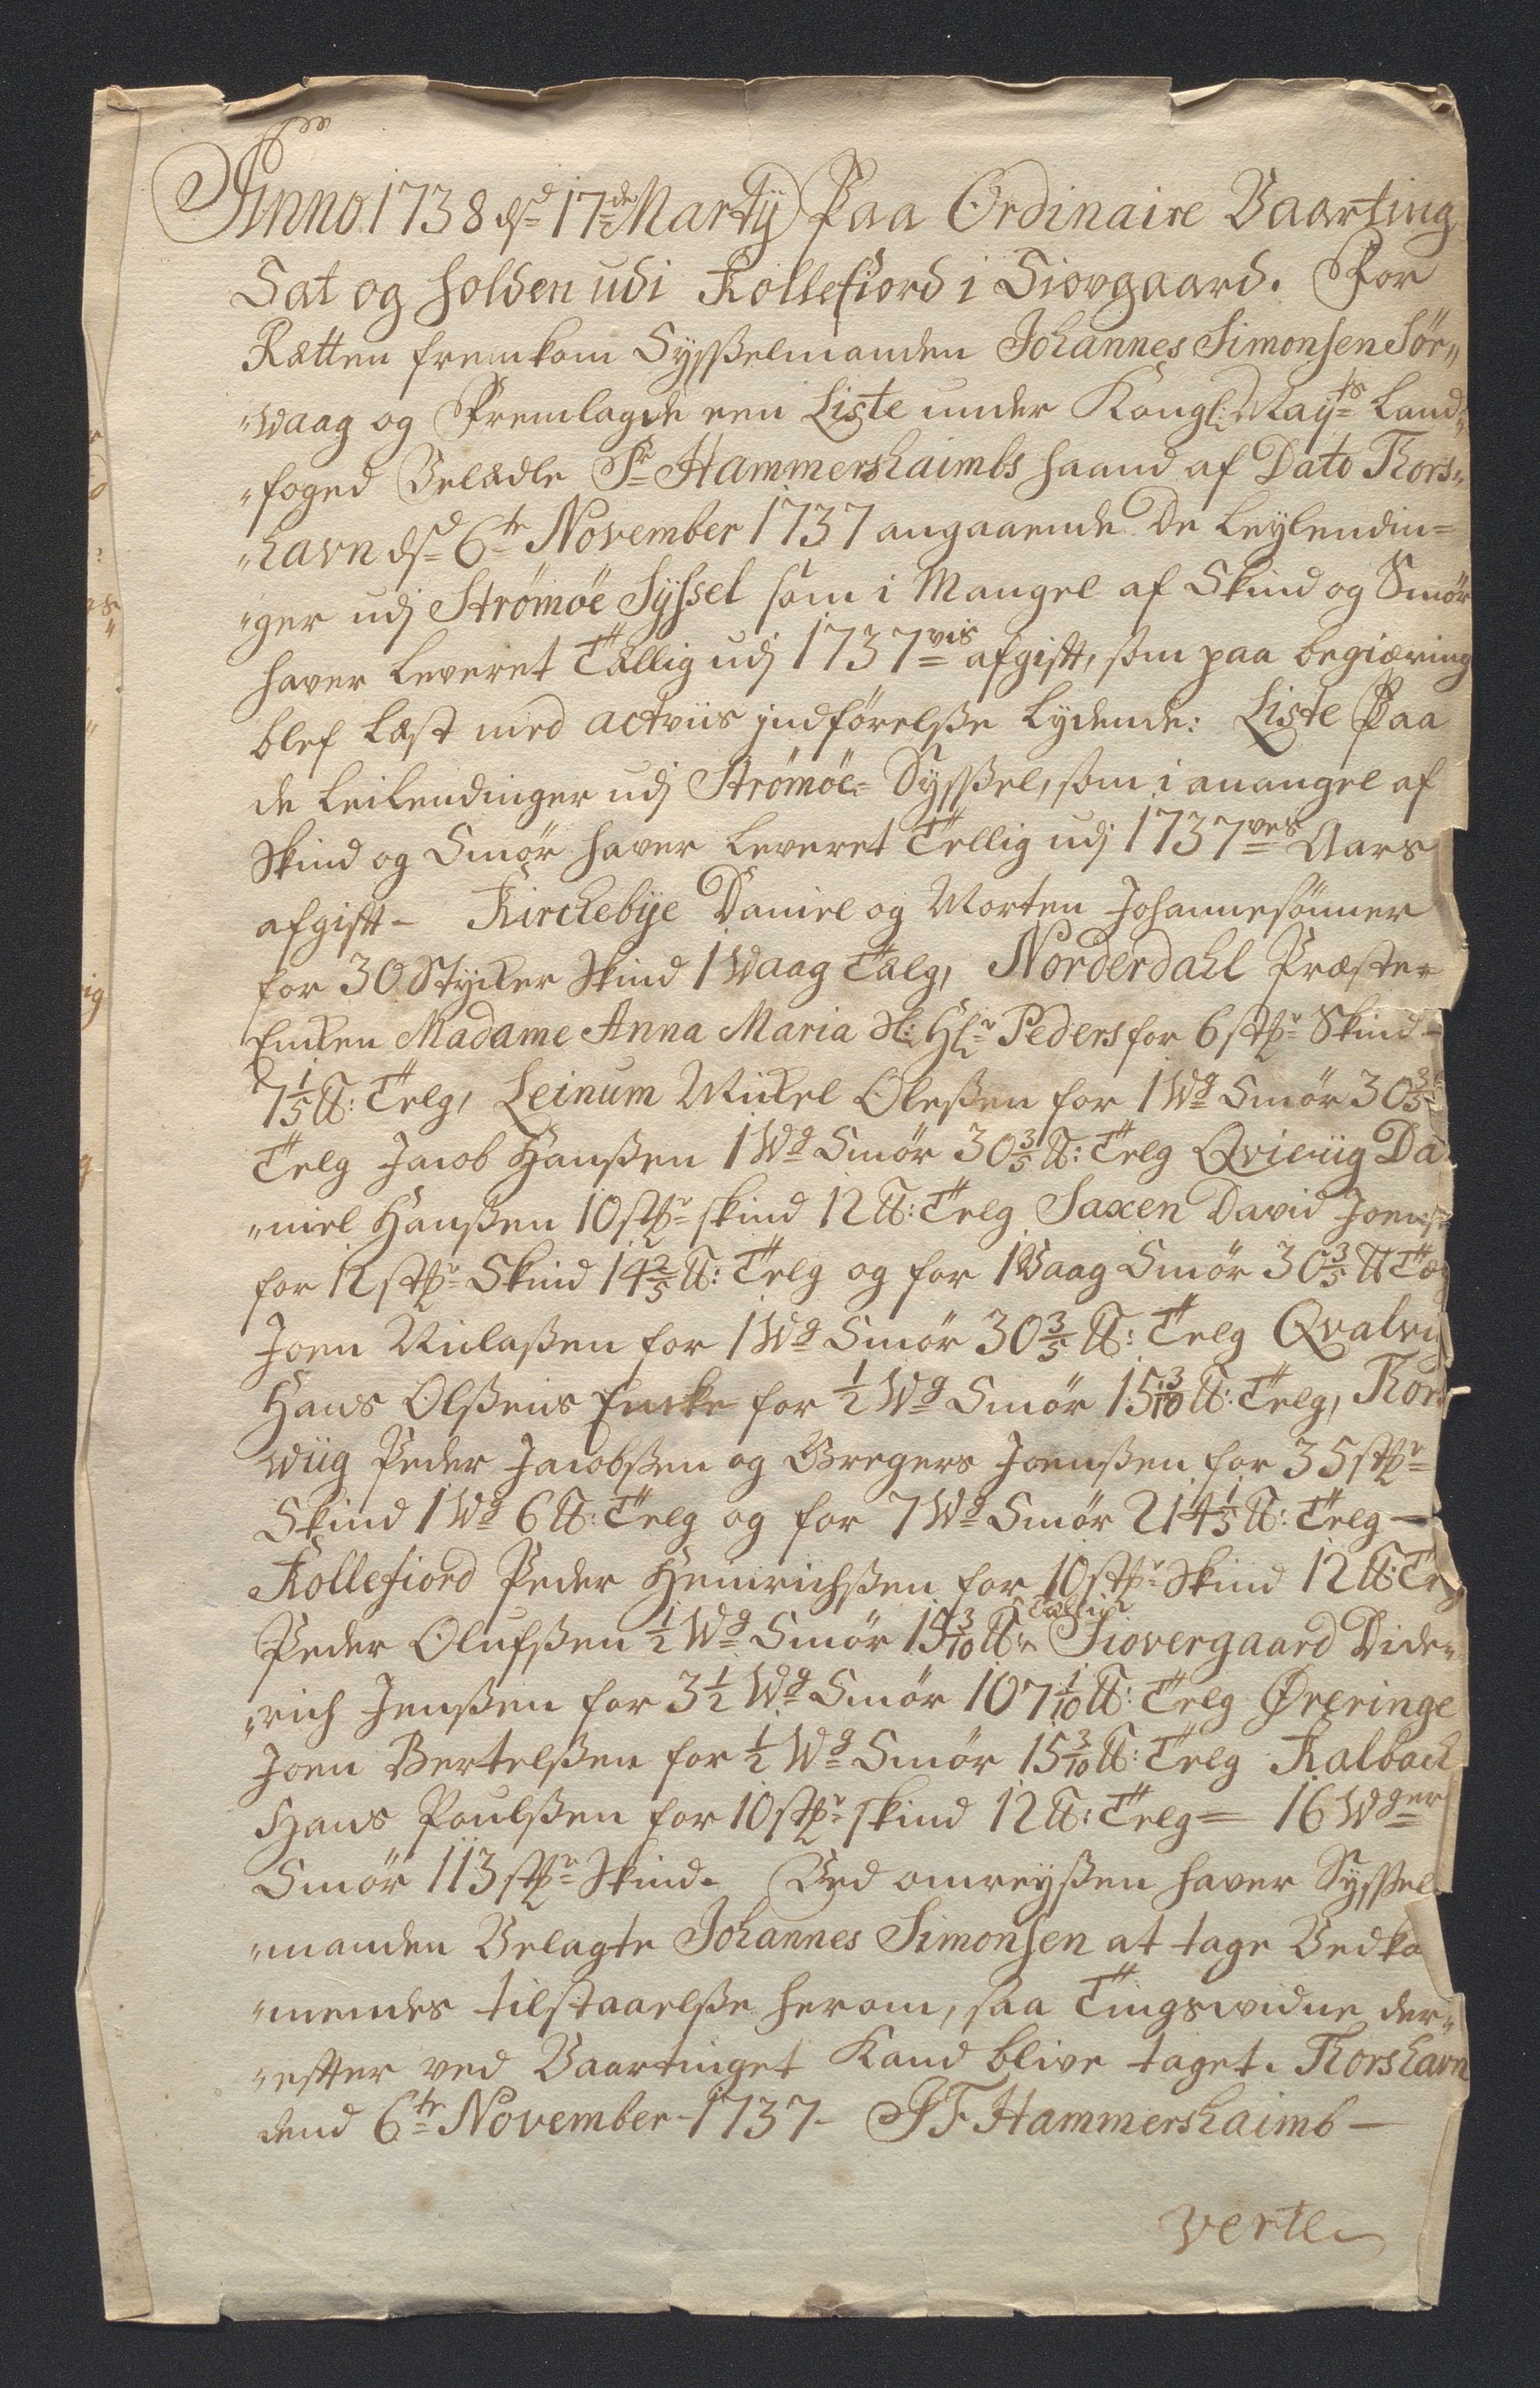 Anno 1738 dsd 17de Martÿ Paa Ordinaire Vaarting
Sat og holden udi Kollefiord i Siovgaard. For
Rætten fremkom Sysselmanden Johannes Simonsen Sør„
„waag og Fremlagde een Liste under Kongl: Mayts Land„
„foged Velædle Sr Hammershaimbs haand af Dato Thors„
„havn dsd 6te November 1737 angaaende De Leylendin=
„ger udj Strømöe Sÿssel som i Mangel af Skind og Smör
haver Leveret Tællig udj 1737vis afgift, som paa begiæring
blef Læst med actviis jndförelsse Lydende: Liste Paa
de Leilendinger udj Strömöe= Sysssel, som i mangel af
Skind og Smör haver Leveret Tellig udj 1737ves Aars
afgift - Kirckebÿe Daniel og Morten Johannesönner
for 30 Stycker Skind 1 Waag Tælg, Norderdahl Præste=
Encken Madame Anna Maria Sl: Hr Peders for 6 stkr Skind -
7 1/5 ℔: Telg, Leinum Mickel Olessen for 1 Wg Smör 30 3/5
Telg Jacob Hanssen 1 Wg Smör 30 3/5 ℔: Telg Qviviig Da
„niel Hanssen 10 stkr skind 12 ℔: Telg Saxen David Joens
for 12 stkr Skind 14 2/5 ℔: Telg og for 1 Vaag Smör 30 3/5 ℔ Tæ
Joen Niclassen for 1 Wg Smör 30 3/5 ℔: Telg Qvalvi
Hans Olssens Encke for 1/2 Wg Smör 15 3/10 ℔: Telg, Thors
wiig Peder Jacobssen og Gregers Joenssen for 35 stkr
Skind 1 Wg 6 ℔: Telg og for 7 Wg Smör 214 1/5 ℔: Telg -
Kollefiord Peder Heinrichssen for 10 stkr Skind 12 ℔: Telg
Peder Olufssen 1/2 Wg Smör 15 3/10 ℔r Tællig Siovergaard Dide„
„rich Jenssen for 3 1/2 Wg Smör 107 1/10 ℔: Telg Øreringe
Joen Bertelssen for 1/2 Wg Smör 15 3/10 ℔: Telg Kalback
Hans Poulssen for 10 stkr skind 12 ℔: Telg = 16 Wger
Smör 113 stkr Skind. Ved omreyssen haver Syssel
„manden Velagte Johannes Simonsen at tage Vedko
„mendes tilstaaelsse herom, saa Tingswidne der„
„efter ved Vaartinget Kand blive taget. Thorshavn
dend 6te November - 1737 - JF Hammershaimb -
verte